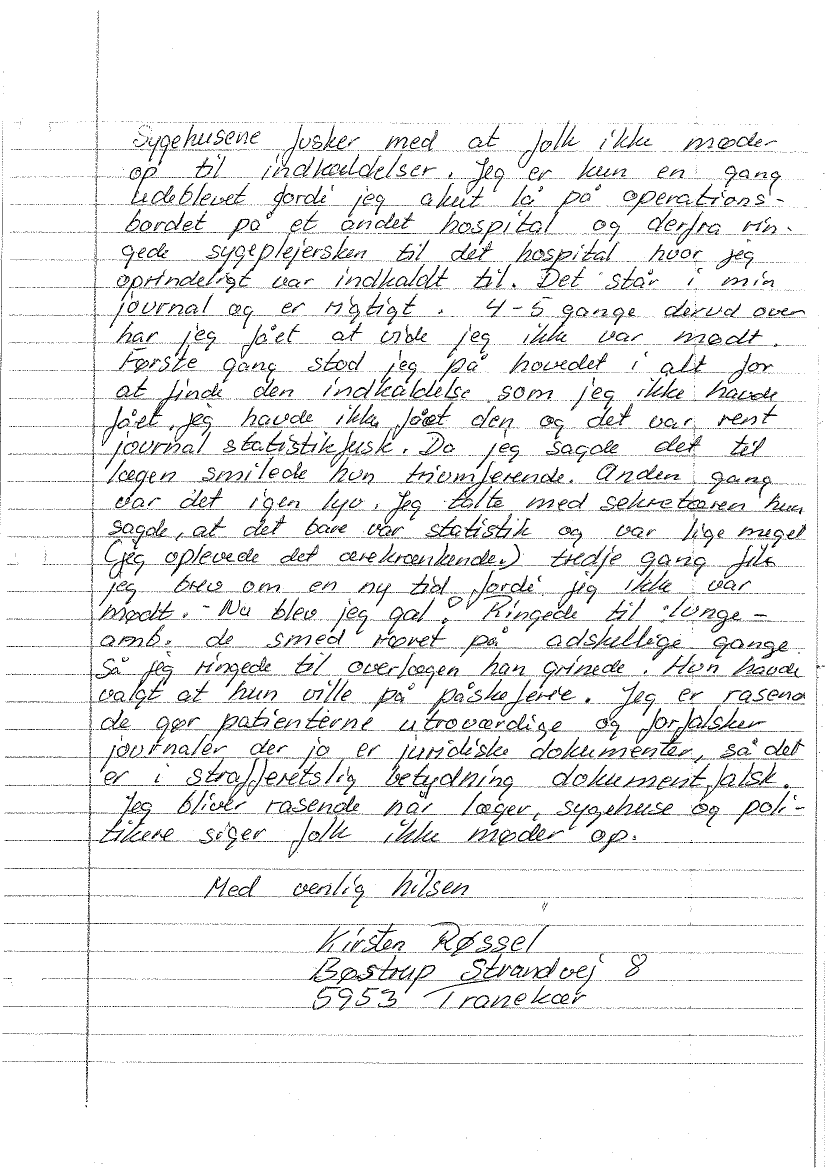 Sygehusene fusker med at folk ikke møder
op til indkældelser. Jeg er kun en gang
udeblevet fordi jeg akut lå på operations-
bordet på et andet hospital og derfra rin-
gede sygeplejersken til det hospital hvor jeg
oprindeligt var indkaldt til. Det står i min
journal og er rigtigt. 4-5 gange derud over
har jeg fået at vide jeg ikke var mødt.
Første gang stod jeg på hovedet i alt for
at finde den indkaldelse som jeg ikke havde
fået. jeg havde ikke fået den og det var rent
journal statistikfusk. Da jeg sagde det til
lægen smilede hun triumferende. Anden gang
var det igen løv. Jeg talte med sekretæren hun
sagde, at det bare var statistik og var lige meget
(jeg oplevede det ærekrænkende.) tredje gang fik
jeg brev om en ny tid fordi jeg ikke var
mødt. - Nu blev jeg gal! Ringede til lunge-
amb. de smed røret på adskellige gange.
Så jeg ringede til overlægen han grinede. Hun havde
valgt at hun ville på påskeferie. Jeg er rasende
de gør patienterne utroværdige og forfalsker
journaler der jo er juridiske dokumenter, så det
er i strafferetslig betydning dokumentfalsk.
Jeg bliver rasende når læger, sygehuse og poli-
tikere siger folk ikke møder op.
Med venlig hilsen
Kirsten Røssel
Bøstrup Strandvej 8
5953 Tranekær